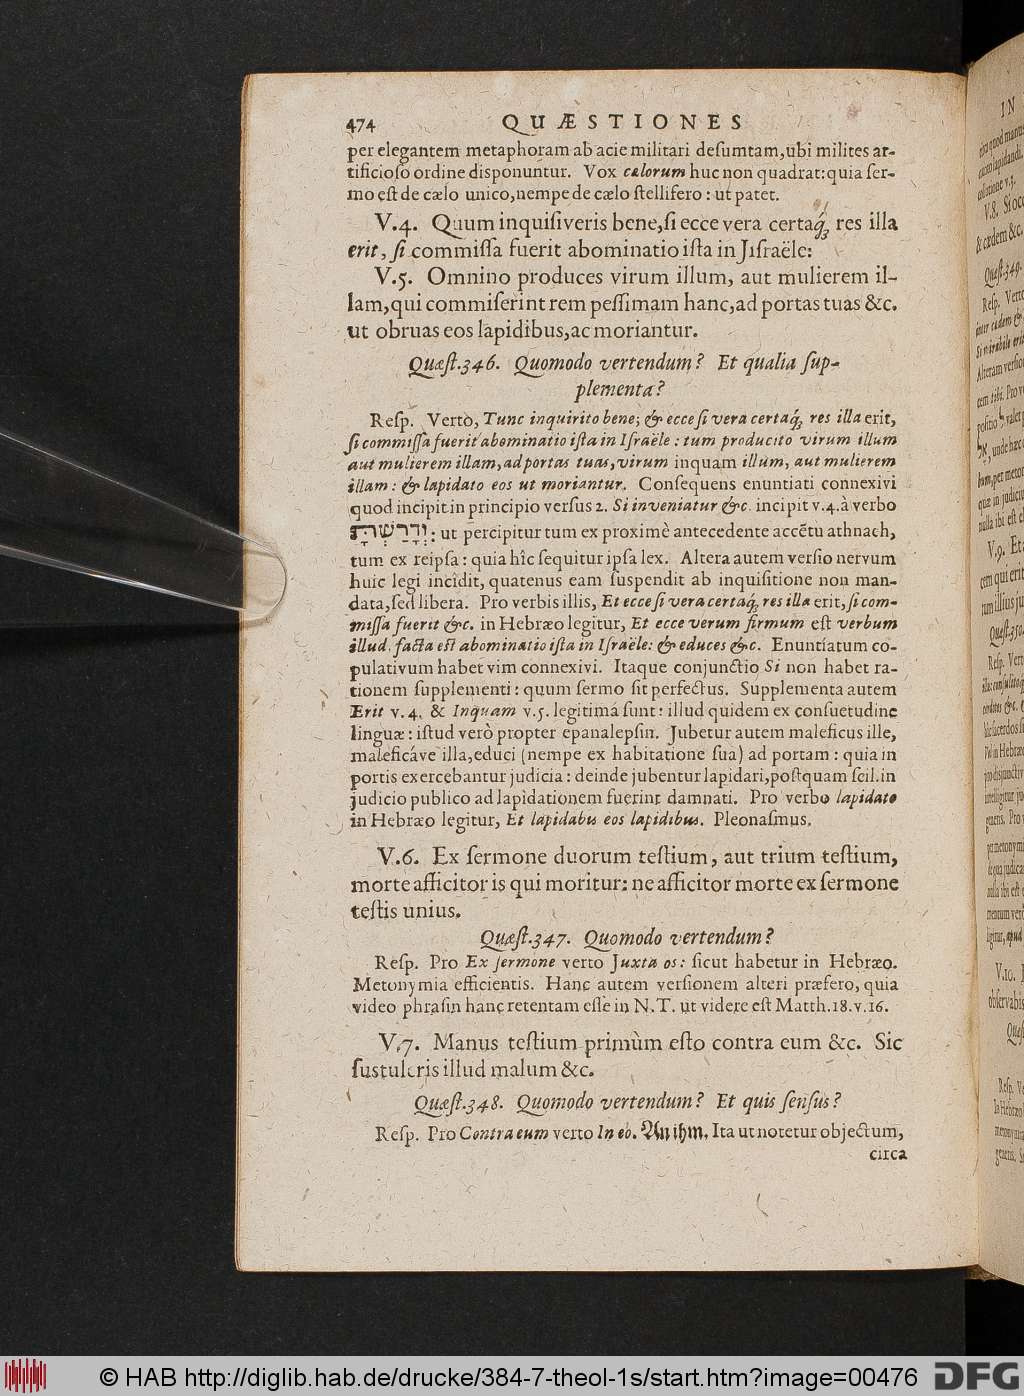 474 QUÆSTIONES
per elegantem metaphoram ab acie militari deſumtam, ubi milites ar-
tificioſo ordine disponuntur. Vox cælorum huc non quadrat: quia ſer-
mo eſt de cælo unico, nempe de cælo ſtellifero: ut patet.
V.4. Quum inquiſiveris bene, ſi ecce vera certaq́ꝫ res illa
erit, ſi commiſſa fuerit abominatio iſta in Jiſraële:
V.5. Omnino produces virum illum, aut mulierem il-
lam, qui commiſerint rem peſſimam hanc, ad portas tuas &c.
ut obruas eos lapidibus, ac moriantur.
Quæſt. 346. Quomodo vertendum? Et qualia ſup-
plementa?
Reſp. Verto, Tunc inquirito bene; & ecce ſi vera certaq́ꝫ res illa erit,
ſi commiſſa fuerit abominatio iſta in Iſraële: tum producito virum illum
aut mulierem illam, ad portas tuas, virum inquam illum, aut mulierem
illam: & lapidato eos ut moriantur. Conſequens enuntiati connexivi
quod incipit in principio verſus 2. Si inveniatur &c. incipit v.4. à verbo
וְדָרַשְׁתָּ: ut percipitur tum ex proximè antecedente accẽtu athnach,
tum ex reipſa: quia hîc ſequitur ipſa lex. Altera autem verſio nervum
huic legi incîdit, quatenus eam ſuspendit ab inquiſitione non man-
data, ſed libera. Pro verbis illis, Et ecce ſi vera certaq́ꝫ res illa erit, ſi com-
miſſa fuerit &c. in Hebræo legitur, Et ecce verum firmum eſt verbum
illud, facta eſt abominatio iſta in Iſraële: & educes &c. Enuntiatum co-
pulativum habet vim connexivi. Itaque conjunctio Si non habet ra-
tionem ſupplementi: quum ſermo ſit perfectus. Supplementa autem
Erit v.4. & Inquam v.5. legitima ſunt: illud quidem ex conſuetudine
linguæ: iſtud verò propter epanalepſin. Jubetur autem maleficus ille,
maleficáve illa, educi (nempe ex habitatione ſua) ad portam: quia in
portis exercebantur judicia: deinde jubentur lapidari, poſtquam ſcil. in
judicio publico ad lapidationem fuerint damnati. Pro verbo lapidato
in Hebræo legitur, Et lapidabis eos lapidibus. Pleonaſmus.
V.6. Ex ſermone duorum teſtium, aut trium teſtium,
morte afficitor is qui moritur: ne afficitor morte ex ſermone
teſtis unius.
Quæſt. 347. Quomodo vertendum?
Reſp. Pro Ex ſermone verto Juxta os: ſicut habetur in Hebræo.
Metonymia efficientis. Hanc autem verſionem alteri præfero, quia
video phraſin hanc retentam eſſe in N.T. ut videre eſt Matth.18.v.16.
V.7. Manus teſtium primùm eſto contra eum &c. Sic
ſustuleris illud malum &c.
Quæſt. 348. Quomodo vertendum? Et quis ſenſus?
Reſp. Pro Contra eum verto In eo. An ihm. Ita ut notetur objectum,
circa
© HAB http://diglib.hab.de/drucke/384-7-theol-1s/start.htm?image=00476
DFG